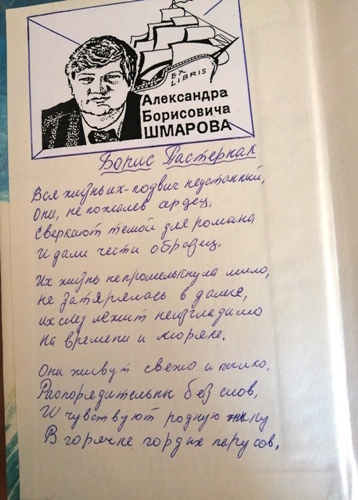 EX
LIBRIS
Александра
Борисовича
ШМАРОВА
Борис Пастернак
Вся жизнь их - подвиг неустанный,
Они, не пожалев сердец,
Сверкают темой для романа
И дали чести образец.
Их жизнь не промелькнула мимо,
не затерялась в далеке,
их след лежит неизгладимо
На времени и моряке.
Они живут свежо и пылко,
Распорядительны без слов,
И чувствуют родную
В горячке гордых парусов,